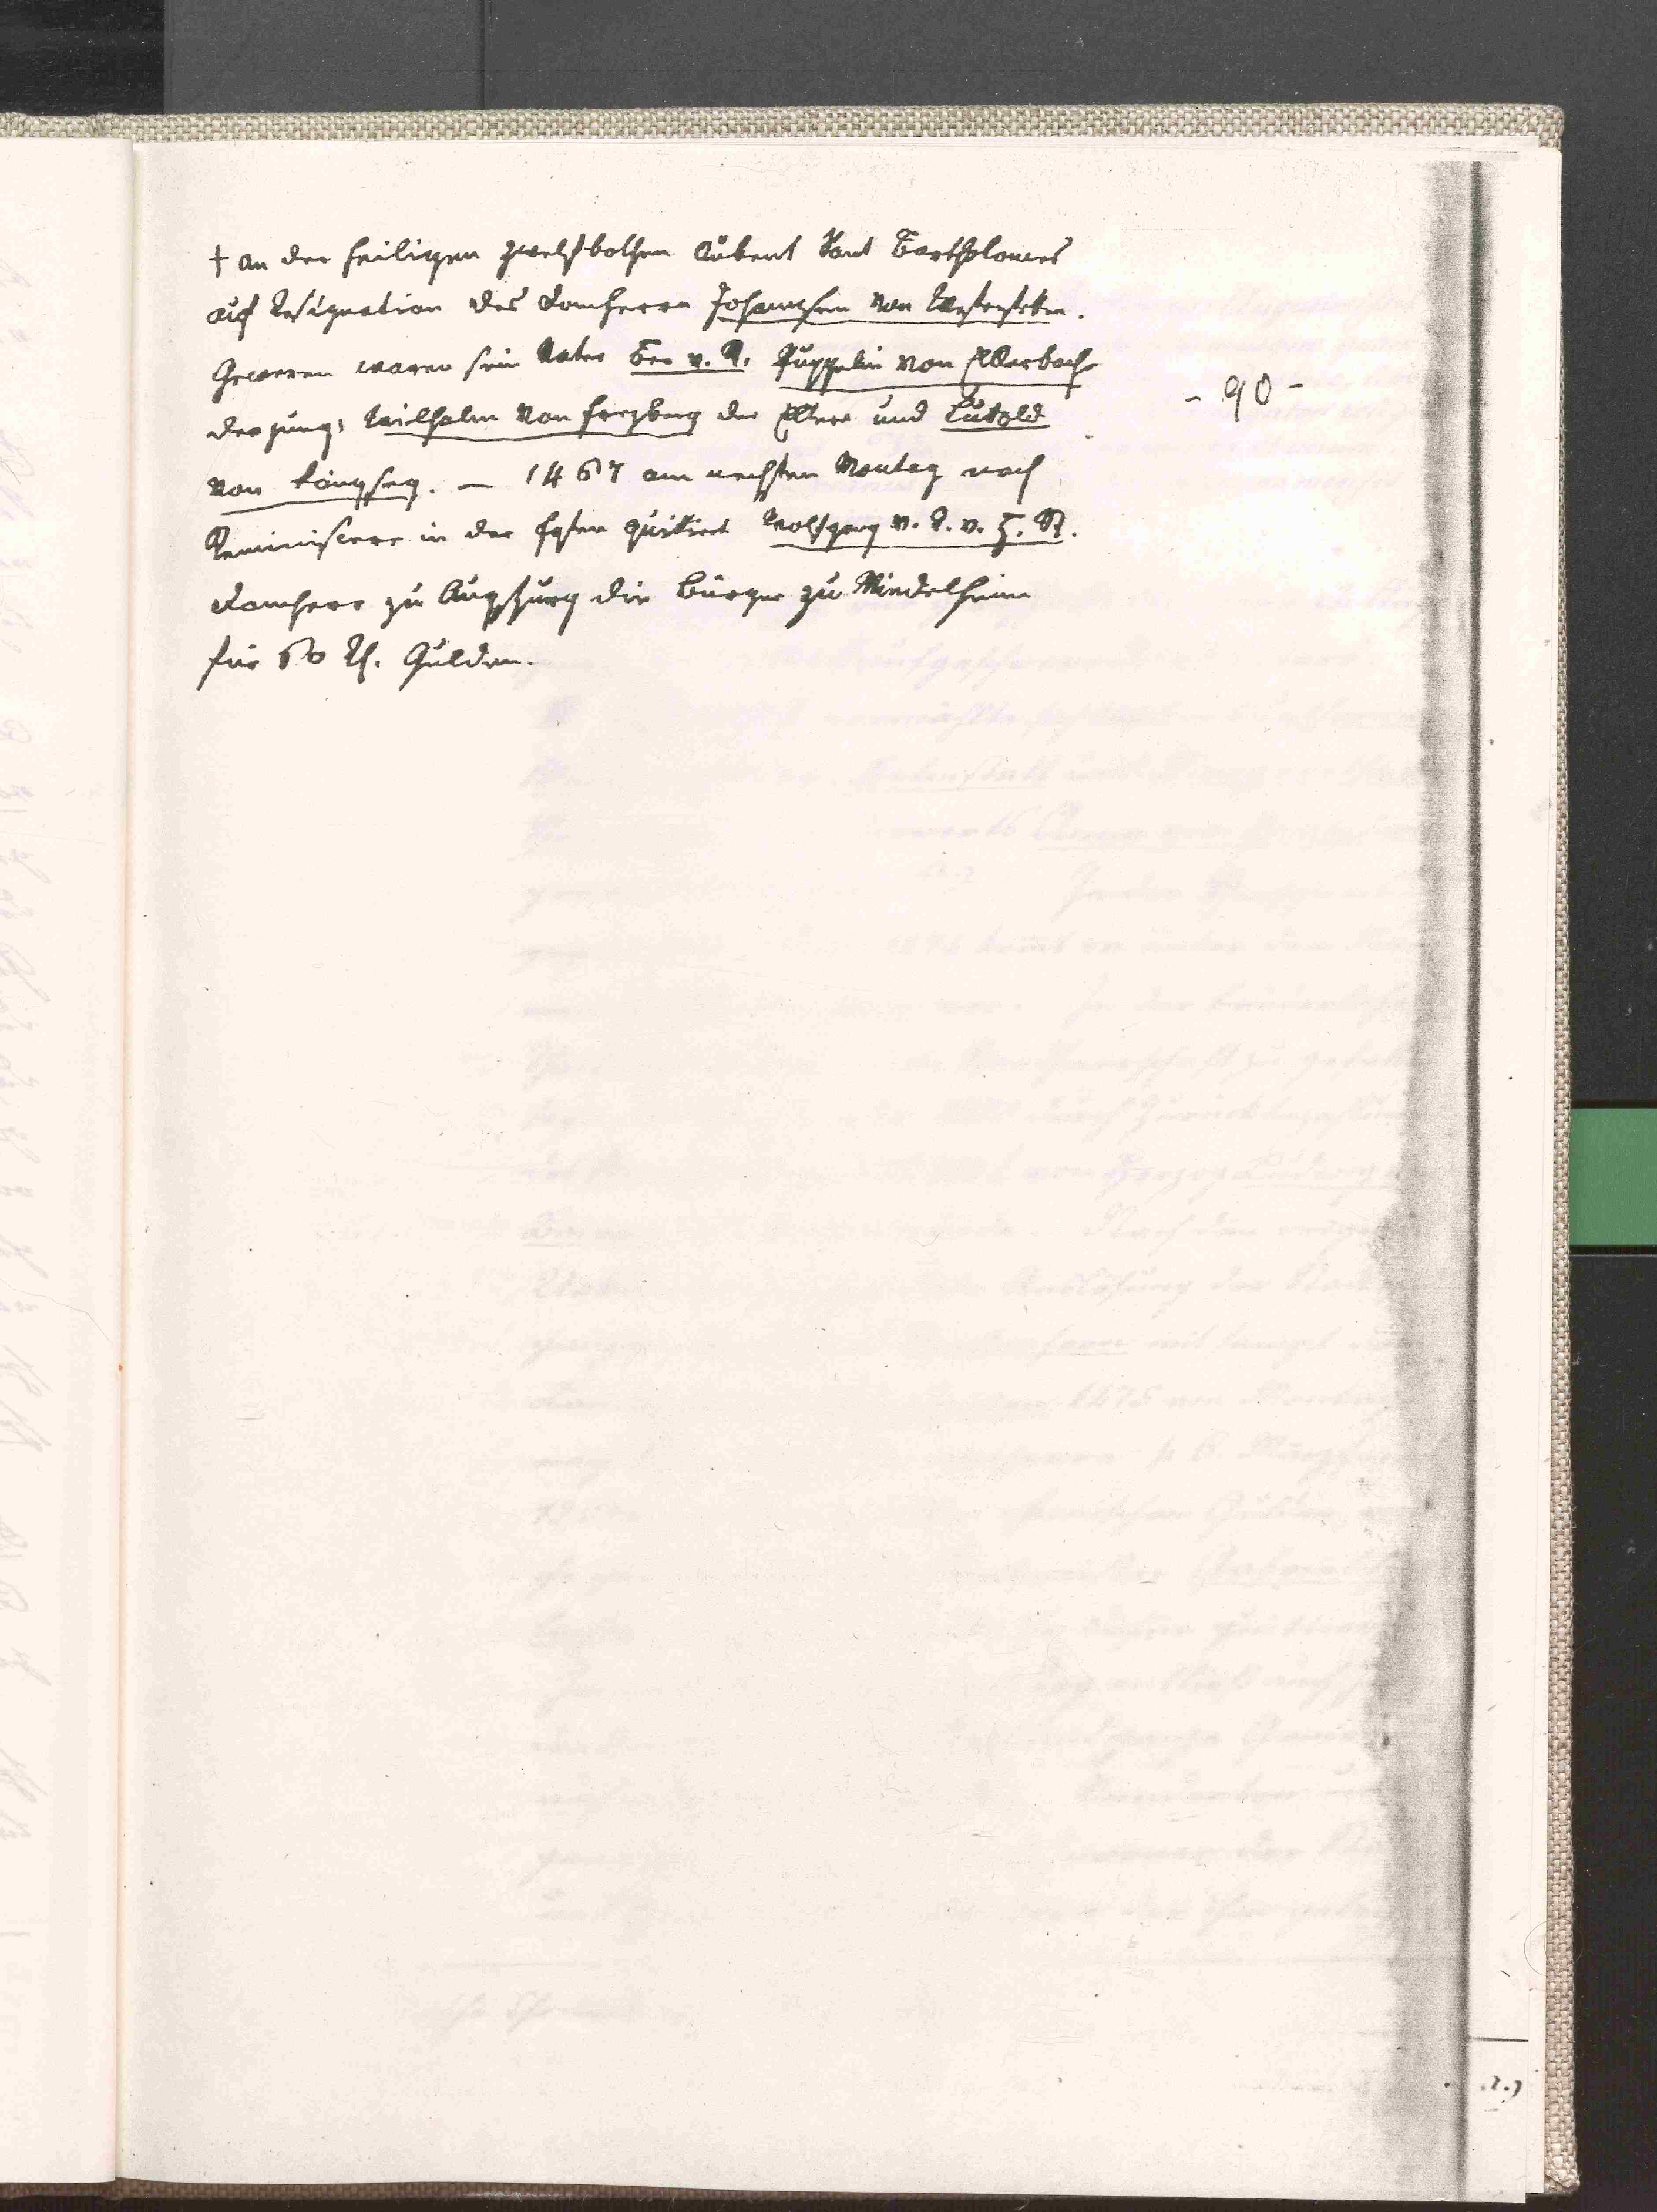 † an der heiligen zwelfbothen Aubent Sant Bartholomes
auf Resignation des Domherrn Johannsen von Westerstetten.
Geweren waren sein Vater Ber v. R. Puppelin von Ellerbach
der jung, Wilhalm von Freyberg der Eltere und Lutold
von Küngseg. — 1467 am nechsten Montag nach
Reminiscere in der Fasten quittiert Wolfgang v. R. v. H. St.
Domherr zu Augspurg die Burger zu Mindelheim
für 60 Rh. Gulden.
- 90 -